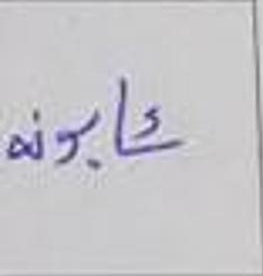 ئابونه